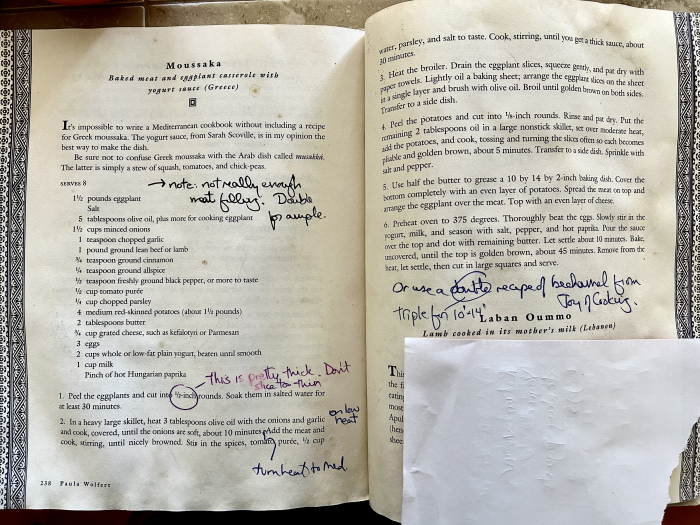 Moussaka
Baked meat and eggplant casserole with
yogurt sauce (Greece)
It's impossible to write a Mediterranean cookbook without including a recipe
for Greek moussaka. The yogurt sauce, from Sarah Scoville, is in my opinion the
best way to make the dish.
Be sure not to confuse Greek moussaka with the Arab dish called musakka.
The latter is simply a stew of squash, tomatoes, and chick-peas.
SERVES 8
→ note: not really enough
meat filling. Double
for ample.
1½ pounds eggplant
Salt
5 tablespoons olive oil, plus more for cooking eggplant
1½ cups minced onions
1 teaspoon chopped garlic
1 pound ground lean beef or lamb
¾ teaspoon ground cinnamon
¼ teaspoon ground allspice
½ teaspoon freshly ground black pepper, or more to taste
½ cup tomato purée
¼ cup chopped parsley
4 medium red-skinned potatoes (about 1½ pounds)
2 tablespoons butter
¾ cup grated cheese, such as kefalotyri or Parmesan
3 eggs
2 cups whole or low-fat plain yogurt, beaten until smooth
1 cup milk
Pinch of hot Hungarian paprika
This is pretty thick. Don't
slice to thin
1. Peel the eggplants and cut into ½-inch rounds. Soak them in salted water for
at least 30 minutes.
on low
heat
2. In a heavy large skillet, heat 3 tablespoons olive oil with the onions and garlic
and cook, covered, until the onions are soft, about 10 minutes. Add the meat and
cook, stirring, until nicely browned. Stir in the spices, tomato purée, ½ cup
turn heat to med
238 Paula Wolfert
water, parsley, and salt to taste. Cook, stirring, until you get a thick sauce, about
30 minutes.
3. Heat the broiler. Drain the eggplant slices, squeeze gently, and pat dry with
paper towels. Lightly oil a baking sheet; arrange the eggplant slices on the sheet
in a single layer and brush with olive oil. Broil until golden brown on both sides.
Transfer to a side dish.
4. Peel the potatoes and cut into ⅛-inch rounds. Rinse and pat dry. Put the
remaining 2 tablespoons oil in a large nonstick skillet, set over moderate heat,
add the potatoes, and cook, tossing and turning the slices often so each becomes
pliable and golden brown, about 5 minutes. Transfer to a side dish. Sprinkle with
salt and pepper.
5. Use half the butter to grease a 10 by 14 by 2-inch baking dish. Cover the
bottom completely with an even layer of potatoes. Spread the meat on top and
arrange the eggplant over the meat. Top with an even layer of cheese.
6. Preheat oven to 375 degrees. Thoroughly beat the eggs. Slowly stir in the
yogurt, milk, and season with salt, pepper, and hot paprika. Pour the sauce
over the top and dot with remaining butter. Let settle about 10 minutes. Bake,
uncovered, until the top is golden brown, about 45 minutes. Remove from the
heat, let settle, then cut in large squares and serve.
Or use a double recipe of bechamel from
Joy of Cooking.
triple for 10"-14"
Laban Oummo
Lamb cooked in its mother's milk (Lebanon)
the f
eating
most
Apul
(hen
shee